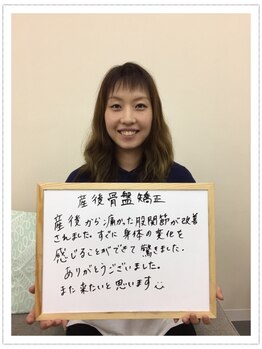 産後骨盤矯正
産後から痛かった股関節が改善
されました。すぐに身体の変化を
感じることができて驚きました。
ありがとうございました。
また来たいと思います